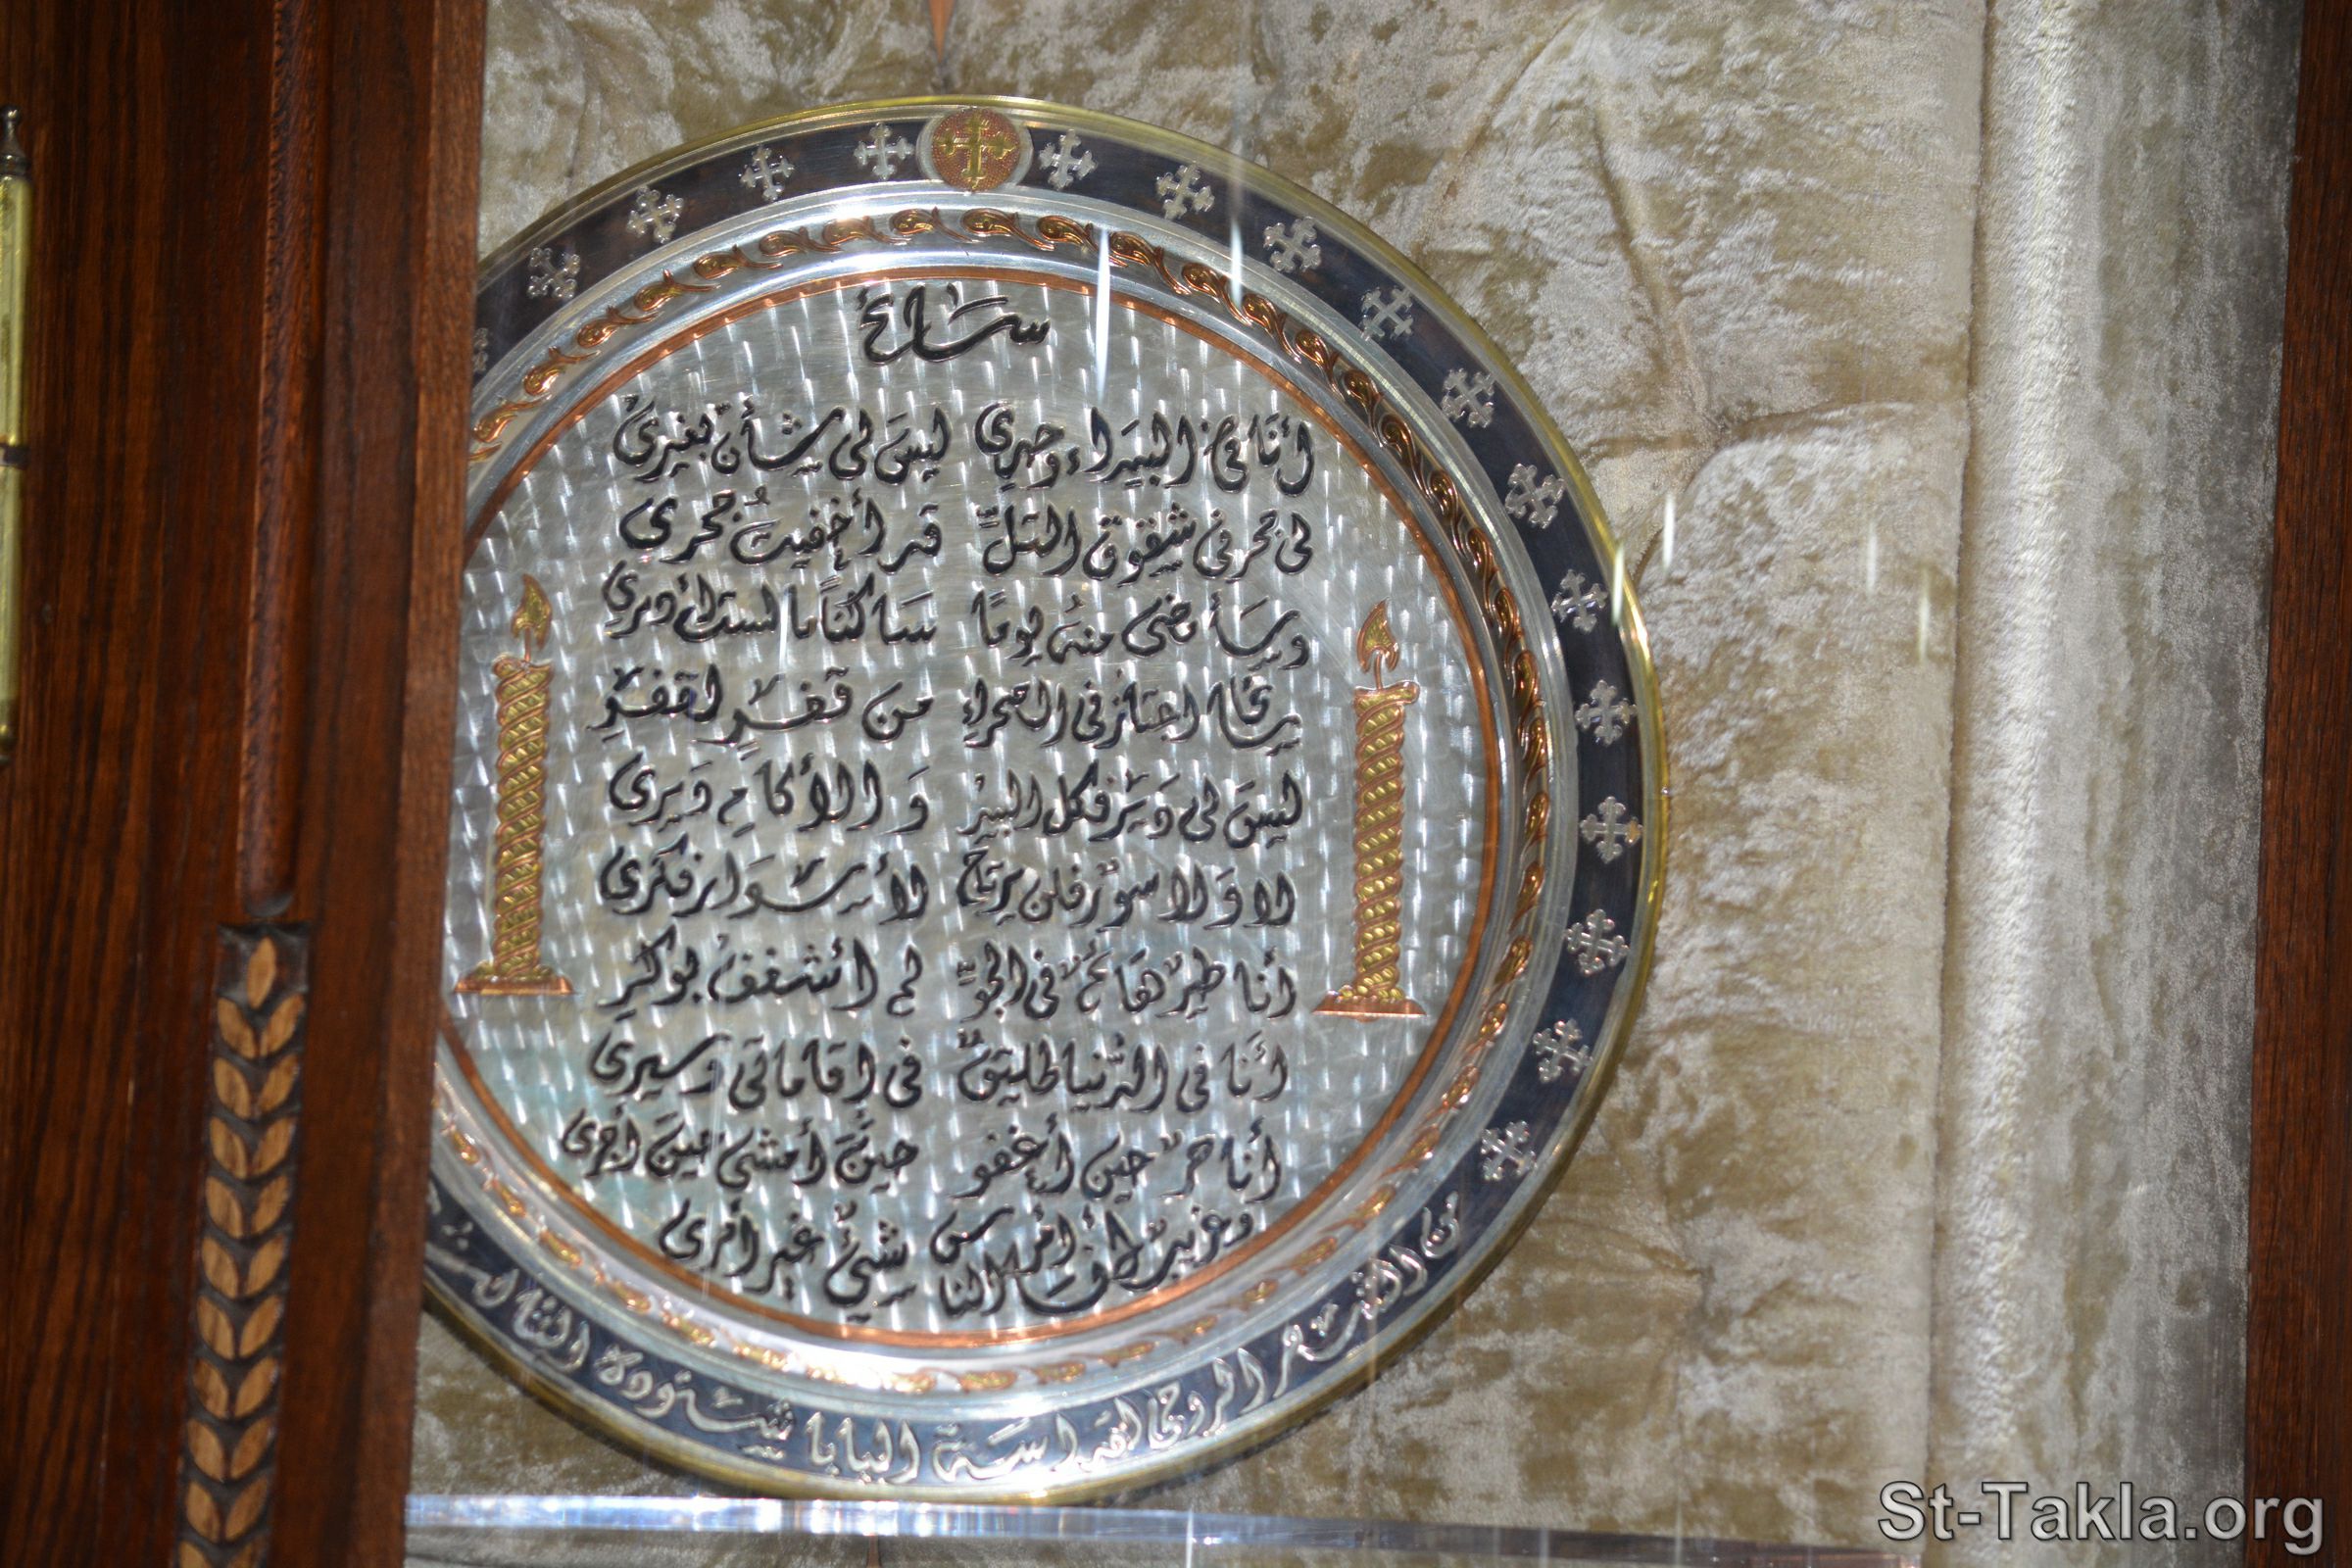 سائح
أنا في البيداء وحدي ليس لي شأن بغيري
لى جحر فى شقوق التل قد أخفيت جحرى
وسأمضى منه يومًا ساكنًا ما لست أدرى
سائحًا اجتاز فى الصحراء من قفر لقفر
ليس لى دير فكل البيد والآكام ديرى
لا ولا سور فلن يرتاح للأسوار فكرى
أنا طير هائم فى الجو لم أشغف بوكر
أنا فى الدنيا طليق فى اقاماتى وسيرى
أنا حر حين أغفو حين أمشى حين أجرى
وغريب أنا أمر الناس شئ غير أمرى
من الشعر الروحى لقداسة البابا شنودة الثالث
St-Takla.org